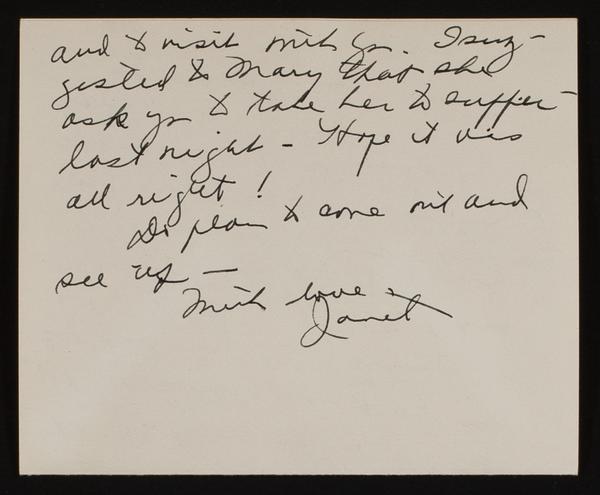 and to visit with you. I sug-
gested to Mary that she
ask you to take her to supper
last night - Hope it was
all right!
Do plan to come out and
see us -
Much love -
Janet